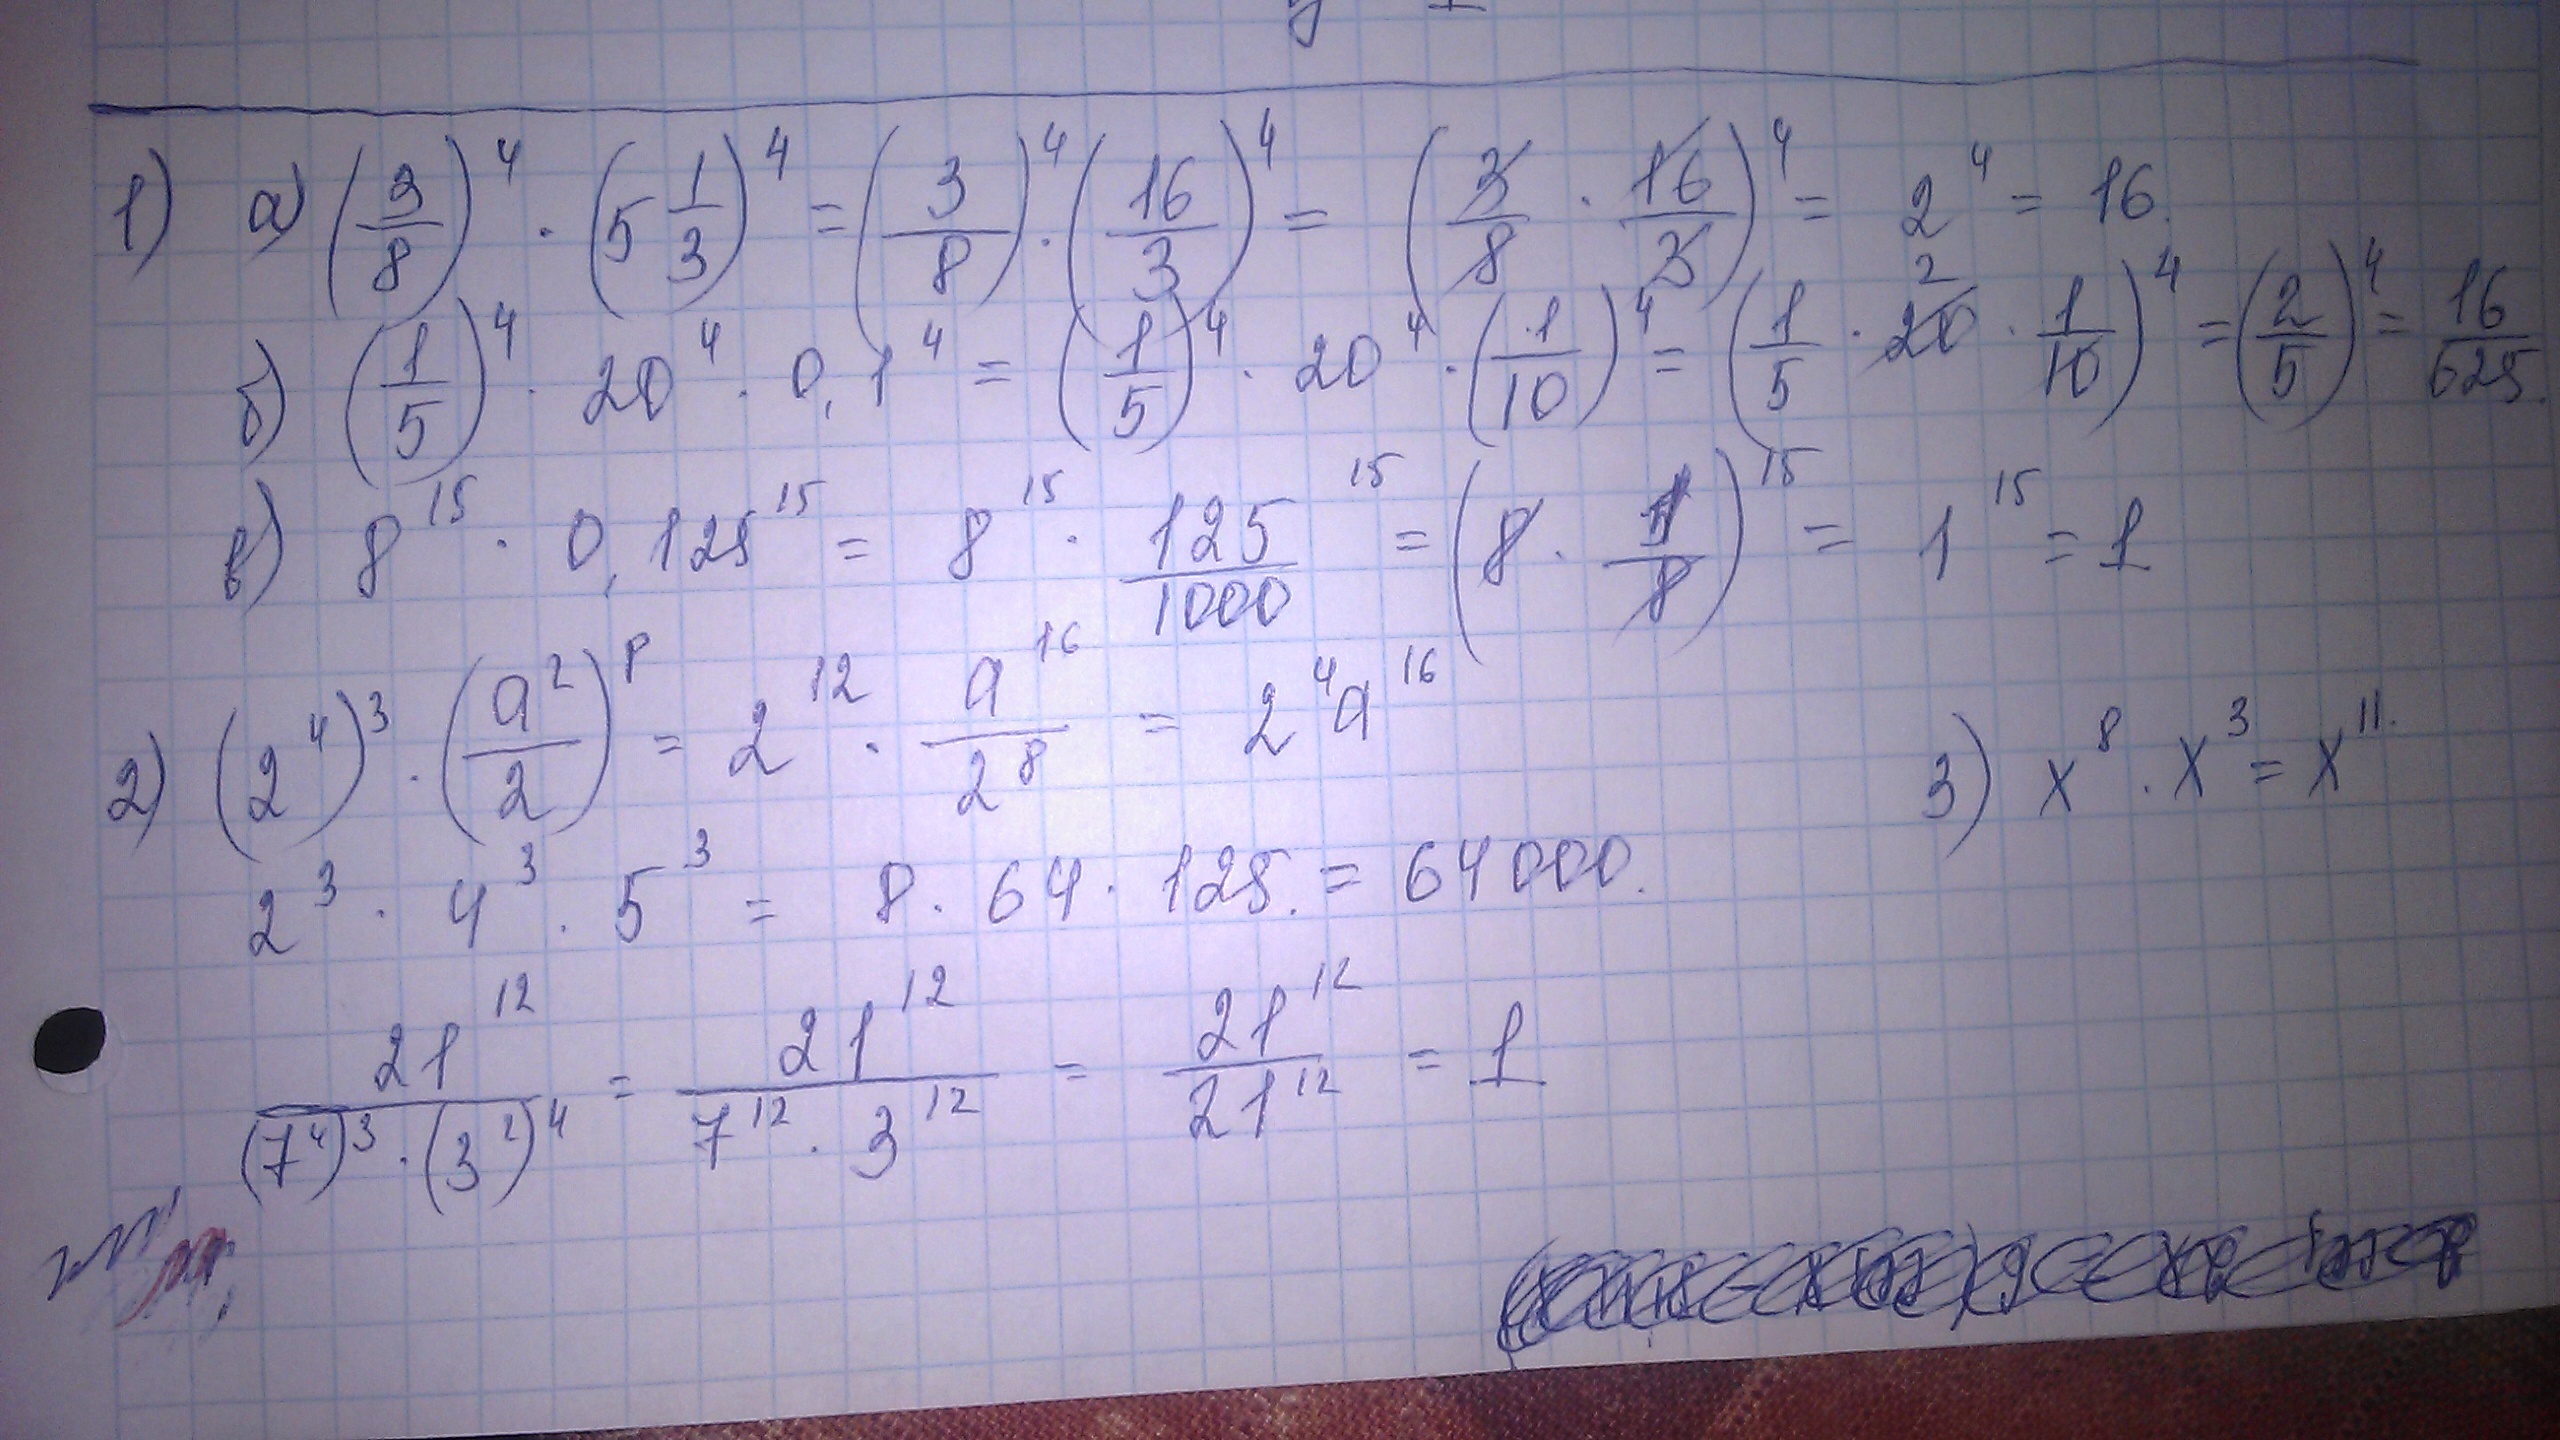 1) а) (3/8)^4 · (5 1/3)^4 = (3/8)^4 · (16/3)^4 = (3/8 · 16/3)^4 = 2^4 = 16.
б) (1/5)^4 · 20^4 · 0,1^4 = (1/5)^4 · 20^4 · (1/10)^4 = (1/5 · 20 2 · 1/10)^4 = (2/5)^4 = 16/625.
в) 8^15 · 0,125^15 = 8^15 · 125/1000^15 = (8 · 1/8)^15 = 1^15 = 1
2) (2^4)^3 · (a^2/2)^8 = 2^12 · a^16/2^8 = 2^4 a^16
3) x^8 · x^3 = x^11.
2^3 · 4^3 · 5^3 = 8 · 64 · 125. = 64000.
21^12/((7^4)^3 · (3^2)^4) = 21^12/(7^12 · 3^12) = 21^12/21^12 = 1